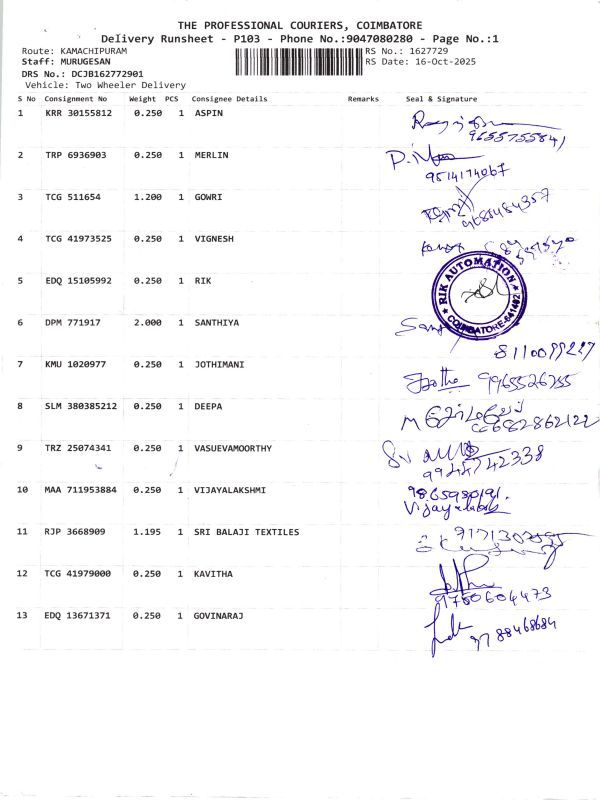 THE PROFESSIONAL COURIERS, COIMBATORE
Delivery Runsheet - P103 - Phone No.:9047080280 - Page No.:1
Route: KAMACHIPURAM RS No.: 1627729
Staff: MURUGESAN RS Date: 16-Oct-2025
DRS No.: DCJB162772901
Vehicle: Two Wheeler Delivery
S No Consignment No Weight PCS Consignee Details Remarks Seal & Signature
1 KRR 30155812 0.250 1 ASPIN
9655755841
2 TRP 6936903 0.250 1 MERLIN
9514174067
3 TCG 511654 1.200 1 GOWRI
4 TCG 41973525 0.250 1 VIGNESH
5 EDQ 15105992 0.250 1 RIK
RIK AUTOMATION
COIMBATORE-641402
6 DPM 771917 2.000 1 SANTHIYA
8110099227
7 KMU 1020977 0.250 1 JOTHIMANI
9965526755
8 SLM 380385212 0.250 1 DEEPA
9 TRZ 25074341 0.250 1 VASUEVAMOORTHY
9944742338
10 MAA 711953884 0.250 1 VIJAYALAKSHMI
9865980191.
11 RJP 3668909 1.195 1 SRI BALAJI TEXTILES
12 TCG 41979000 0.250 1 KAVITHA
9750604473
13 EDQ 13671371 0.250 1 GOVINARAJ
9788468684